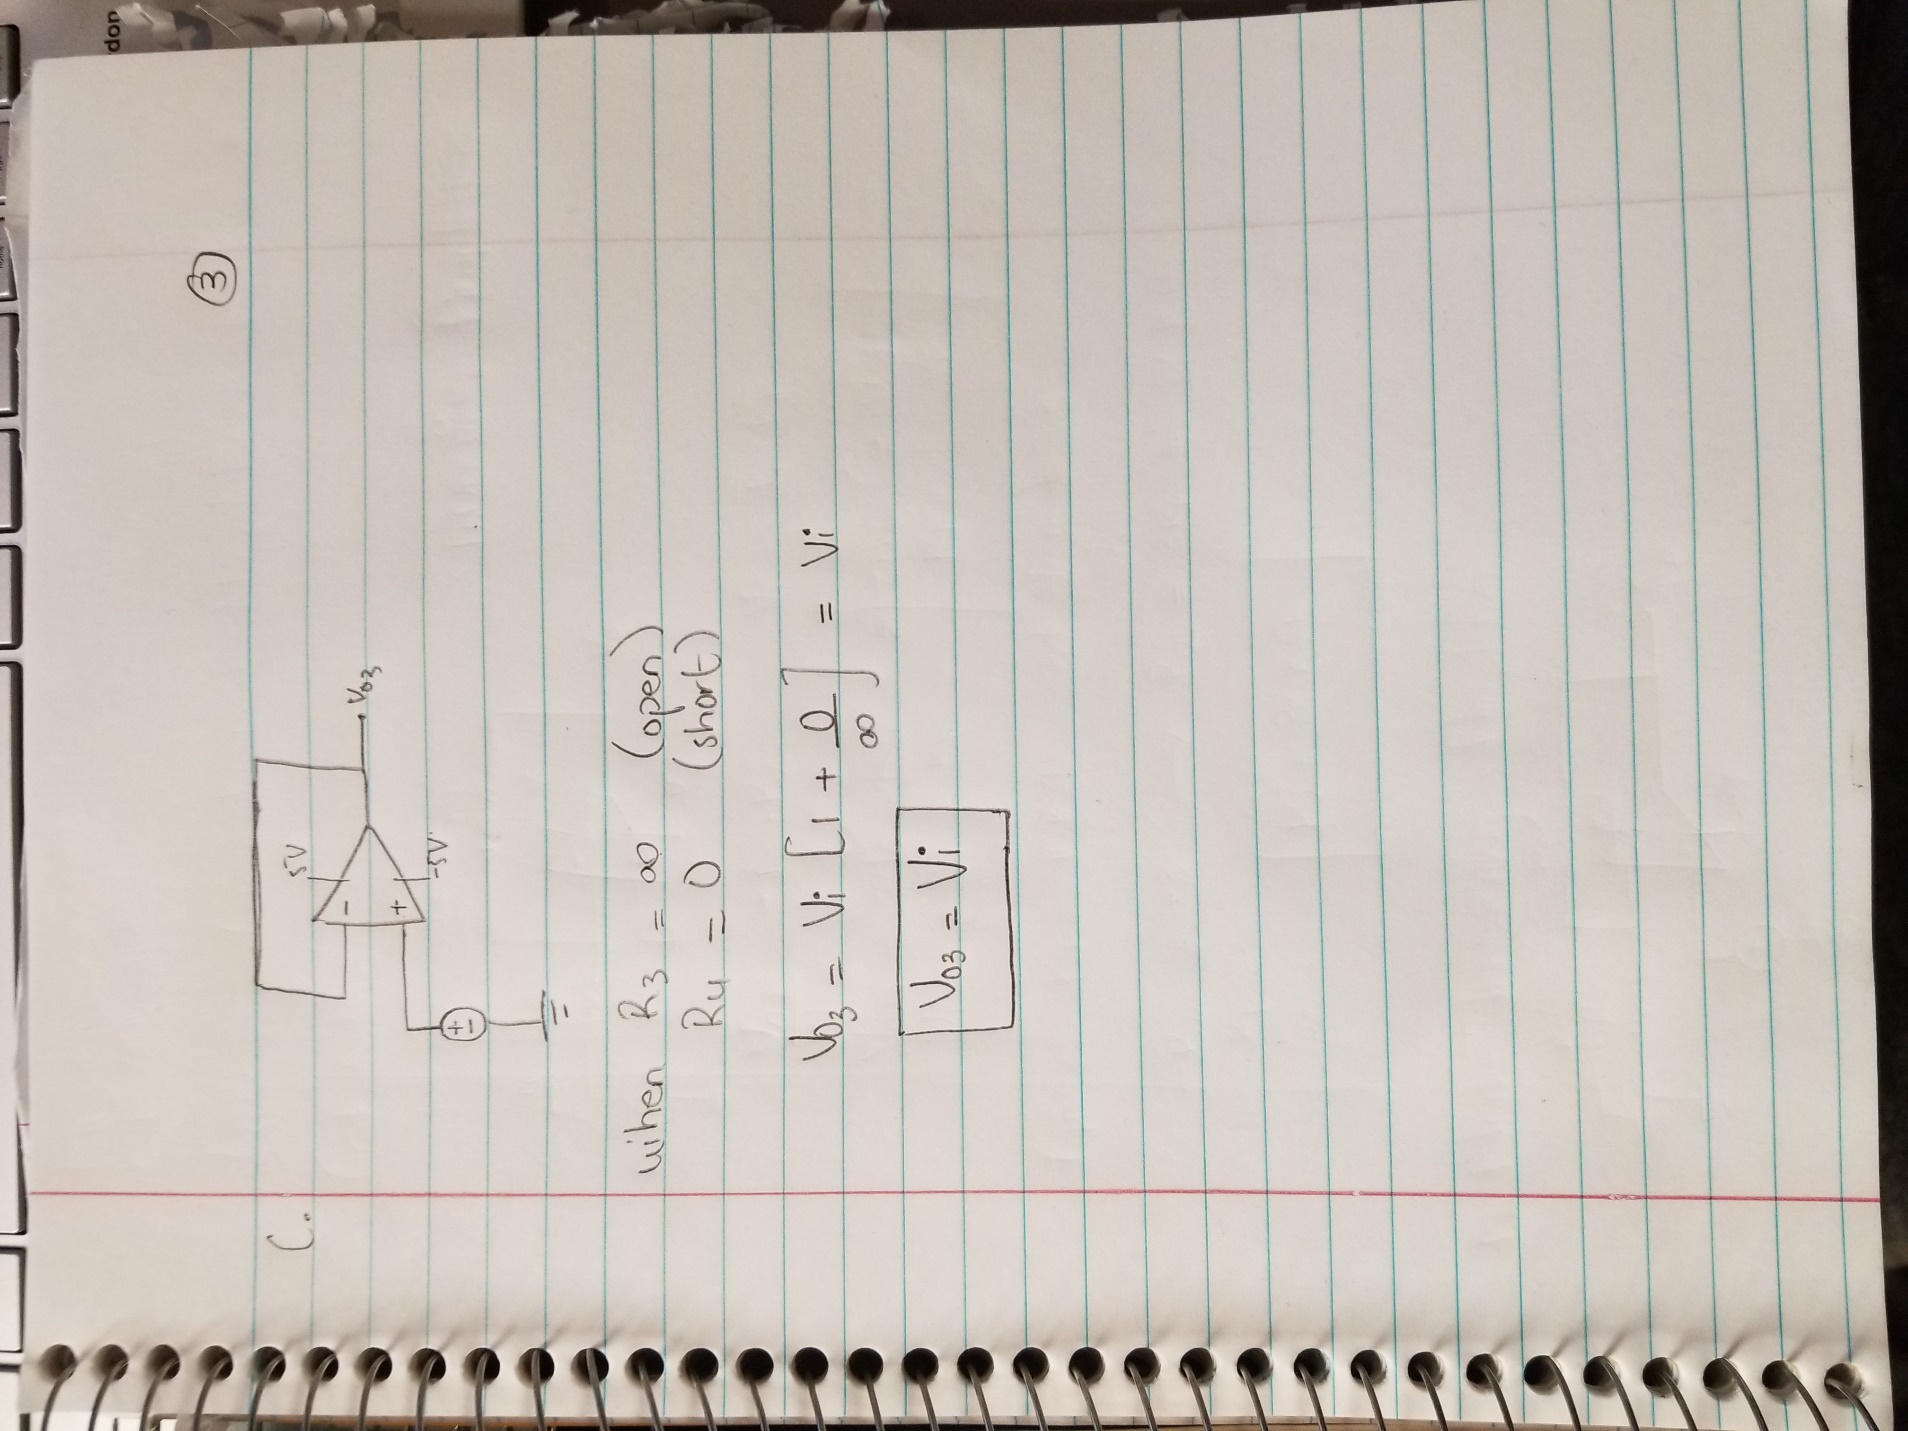 ③
C.
5V
-
+
-5V
Vo3
+
-
when R3 = ∞ (open)
R4 = 0 (short)
Vo3 = Vi [1 + 0/∞] = Vi
Vo3 = Vi
don